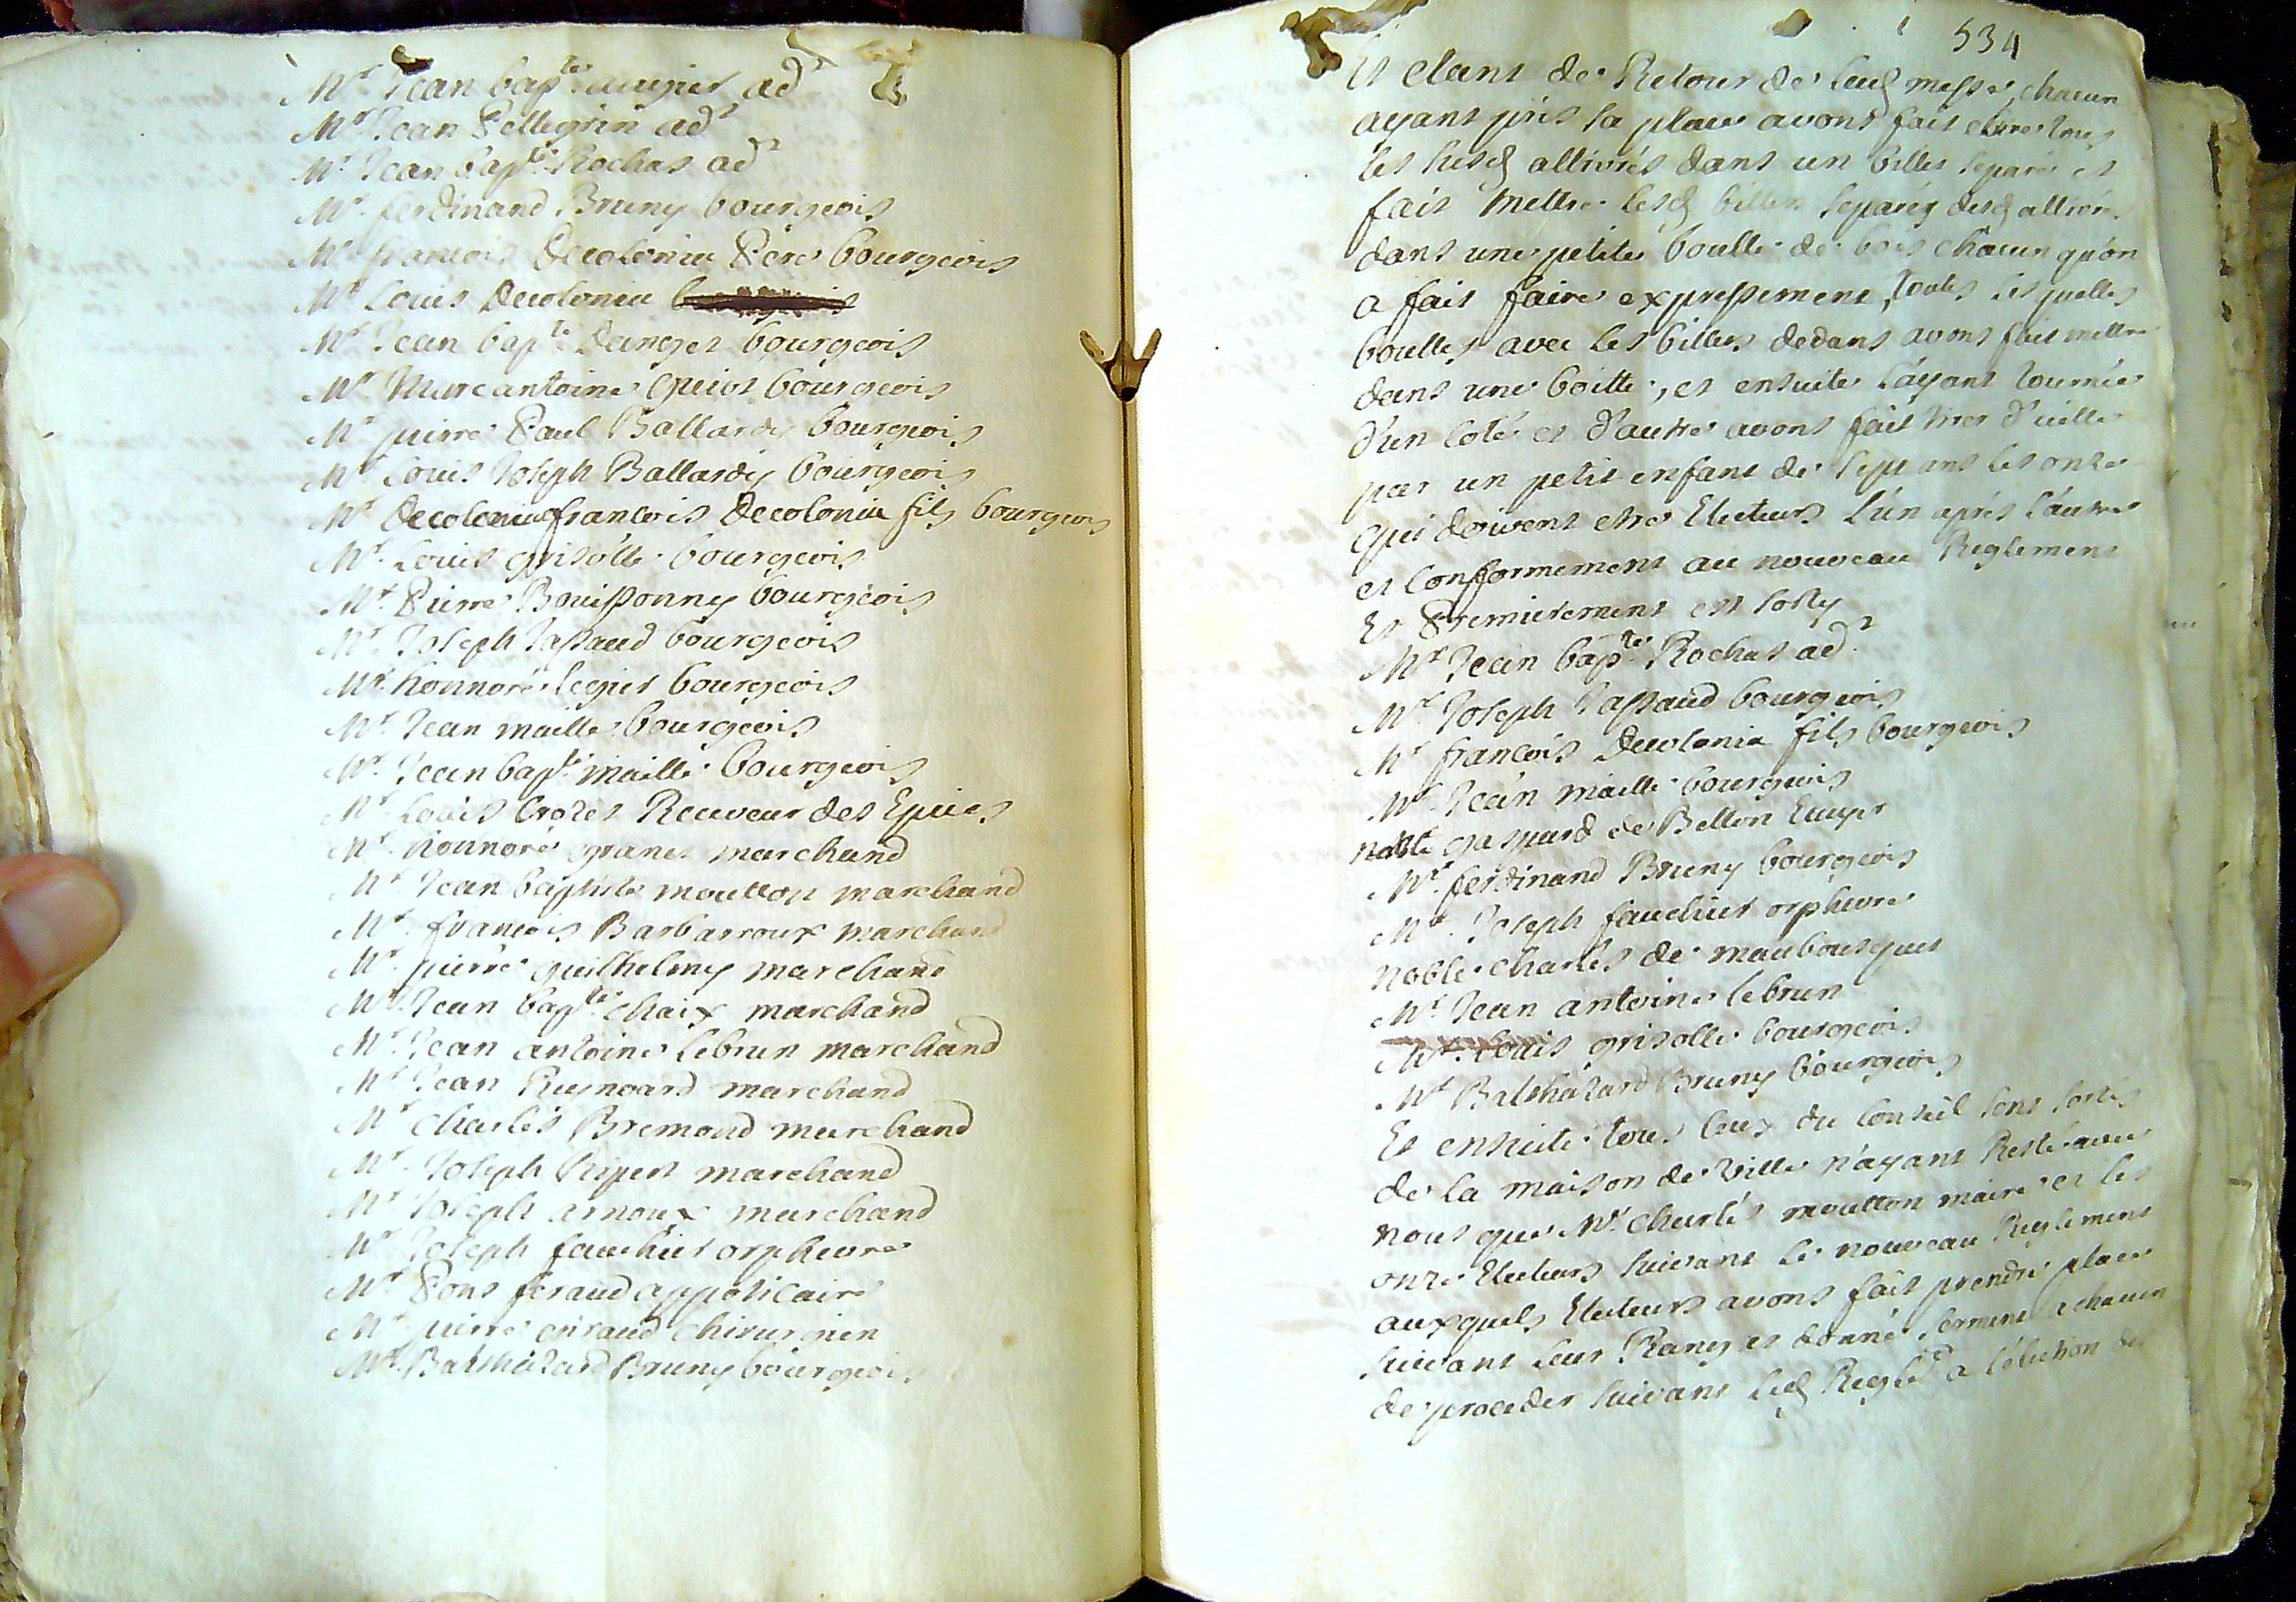 Mr. Jean bapte. augier adt
Mr. Jean Pellegrin adt
Mr. Jean bapte. Rochas adt
Mr. ferdinand Bruny bourgeois
Mr. francois Decolonia Pere bourgeois
Mr. Louis Decolonia
Mr. Jean bapte. Danger bourgeois
Mr. Marcantoine Guiot bourgeois
Mr. pierre Paul Ballardy bourgeois
Mr. Louis Joseph Ballardy bourgeois
Mr. Decolonia francois Decolonia fils bourgeois
Mr. Louis grisolle bourgeois
Mr. Pierre Bouissonny bourgeois
Mr. Joseph Jassaud bourgeois
Mr. honnoré legier bourgeois
Mr. Jean maille bourgeois
Mr. Jean bapte. maille bourgeois
Mr. Louis Crozet Receveur des Epices
Mr. honnoré granet marchand
Mr. Jean baptiste moutton marchand
Mr. francois Barbarroux marchand
Mr. pierre guilhelmy marchand
Mr. Jean bapte. chaix marchand
Mr. Jean antoine lebrun marchand
Mr. Jean Reynoard marchand
Mr. Charles Bremond marchand
Mr. Joseph Ripert marchand
Mr. Joseph arnoux marchand
Mr. Joseph fauchier orphevre
Mr. Pons feraud appoticaire
Mr. pierre giraud chirurgien
Mr. Balthazard Bruny bourgeois
534
Et etant de Retour de lad messe, chacun
ayant pris sa place avons fait ecrire tous
les susd allivrés dans un billet separé et
fait mettre lesd billets separés desd allivrés
dans une petite boulle de bois chacun qu'on
a fait faire expressement, toutes lesquelles
boulles avec les billets dedans avons fait mettre
dans une boitte, et ensuite l'ayant tournée
d'un coté et d'autre avons fait tirer d'icelle
par un petit enfant de sept ans les onze
qui doivent etre Electeurs l'un aprés l'autre
et Conformement au nouveau Reglement
Et Premierement est sorty
Mr. Jean bapte. Rochas adt
Mr. Joseph Jassaud bourgeois
Mr francois Decolonia fils bourgeois
Mr. Jean maille bourgeois
noble gaspard de Bellon Ecuyer
Mr. ferdinand Bruny bourgeois
Mr. Joseph fauchier orphevre
noble Charles de maubousquet
Mr Jean antoine lebrun
Mr. Louis grisolle bourgeois
Mr Balthazard Bruny bourgeois
Et ensuite tous ceux du Conseil sont sortis
de la maison de ville n'ayant Resté avec
nous que Mr. Charles moutton maire et les
onze Electeurs suivant le nouveau Reglement
auxquels Electeurs avons fait prendre place
suivant leur Rang et donné serment a chacun
de proceder suivant led Reglt a l'election des